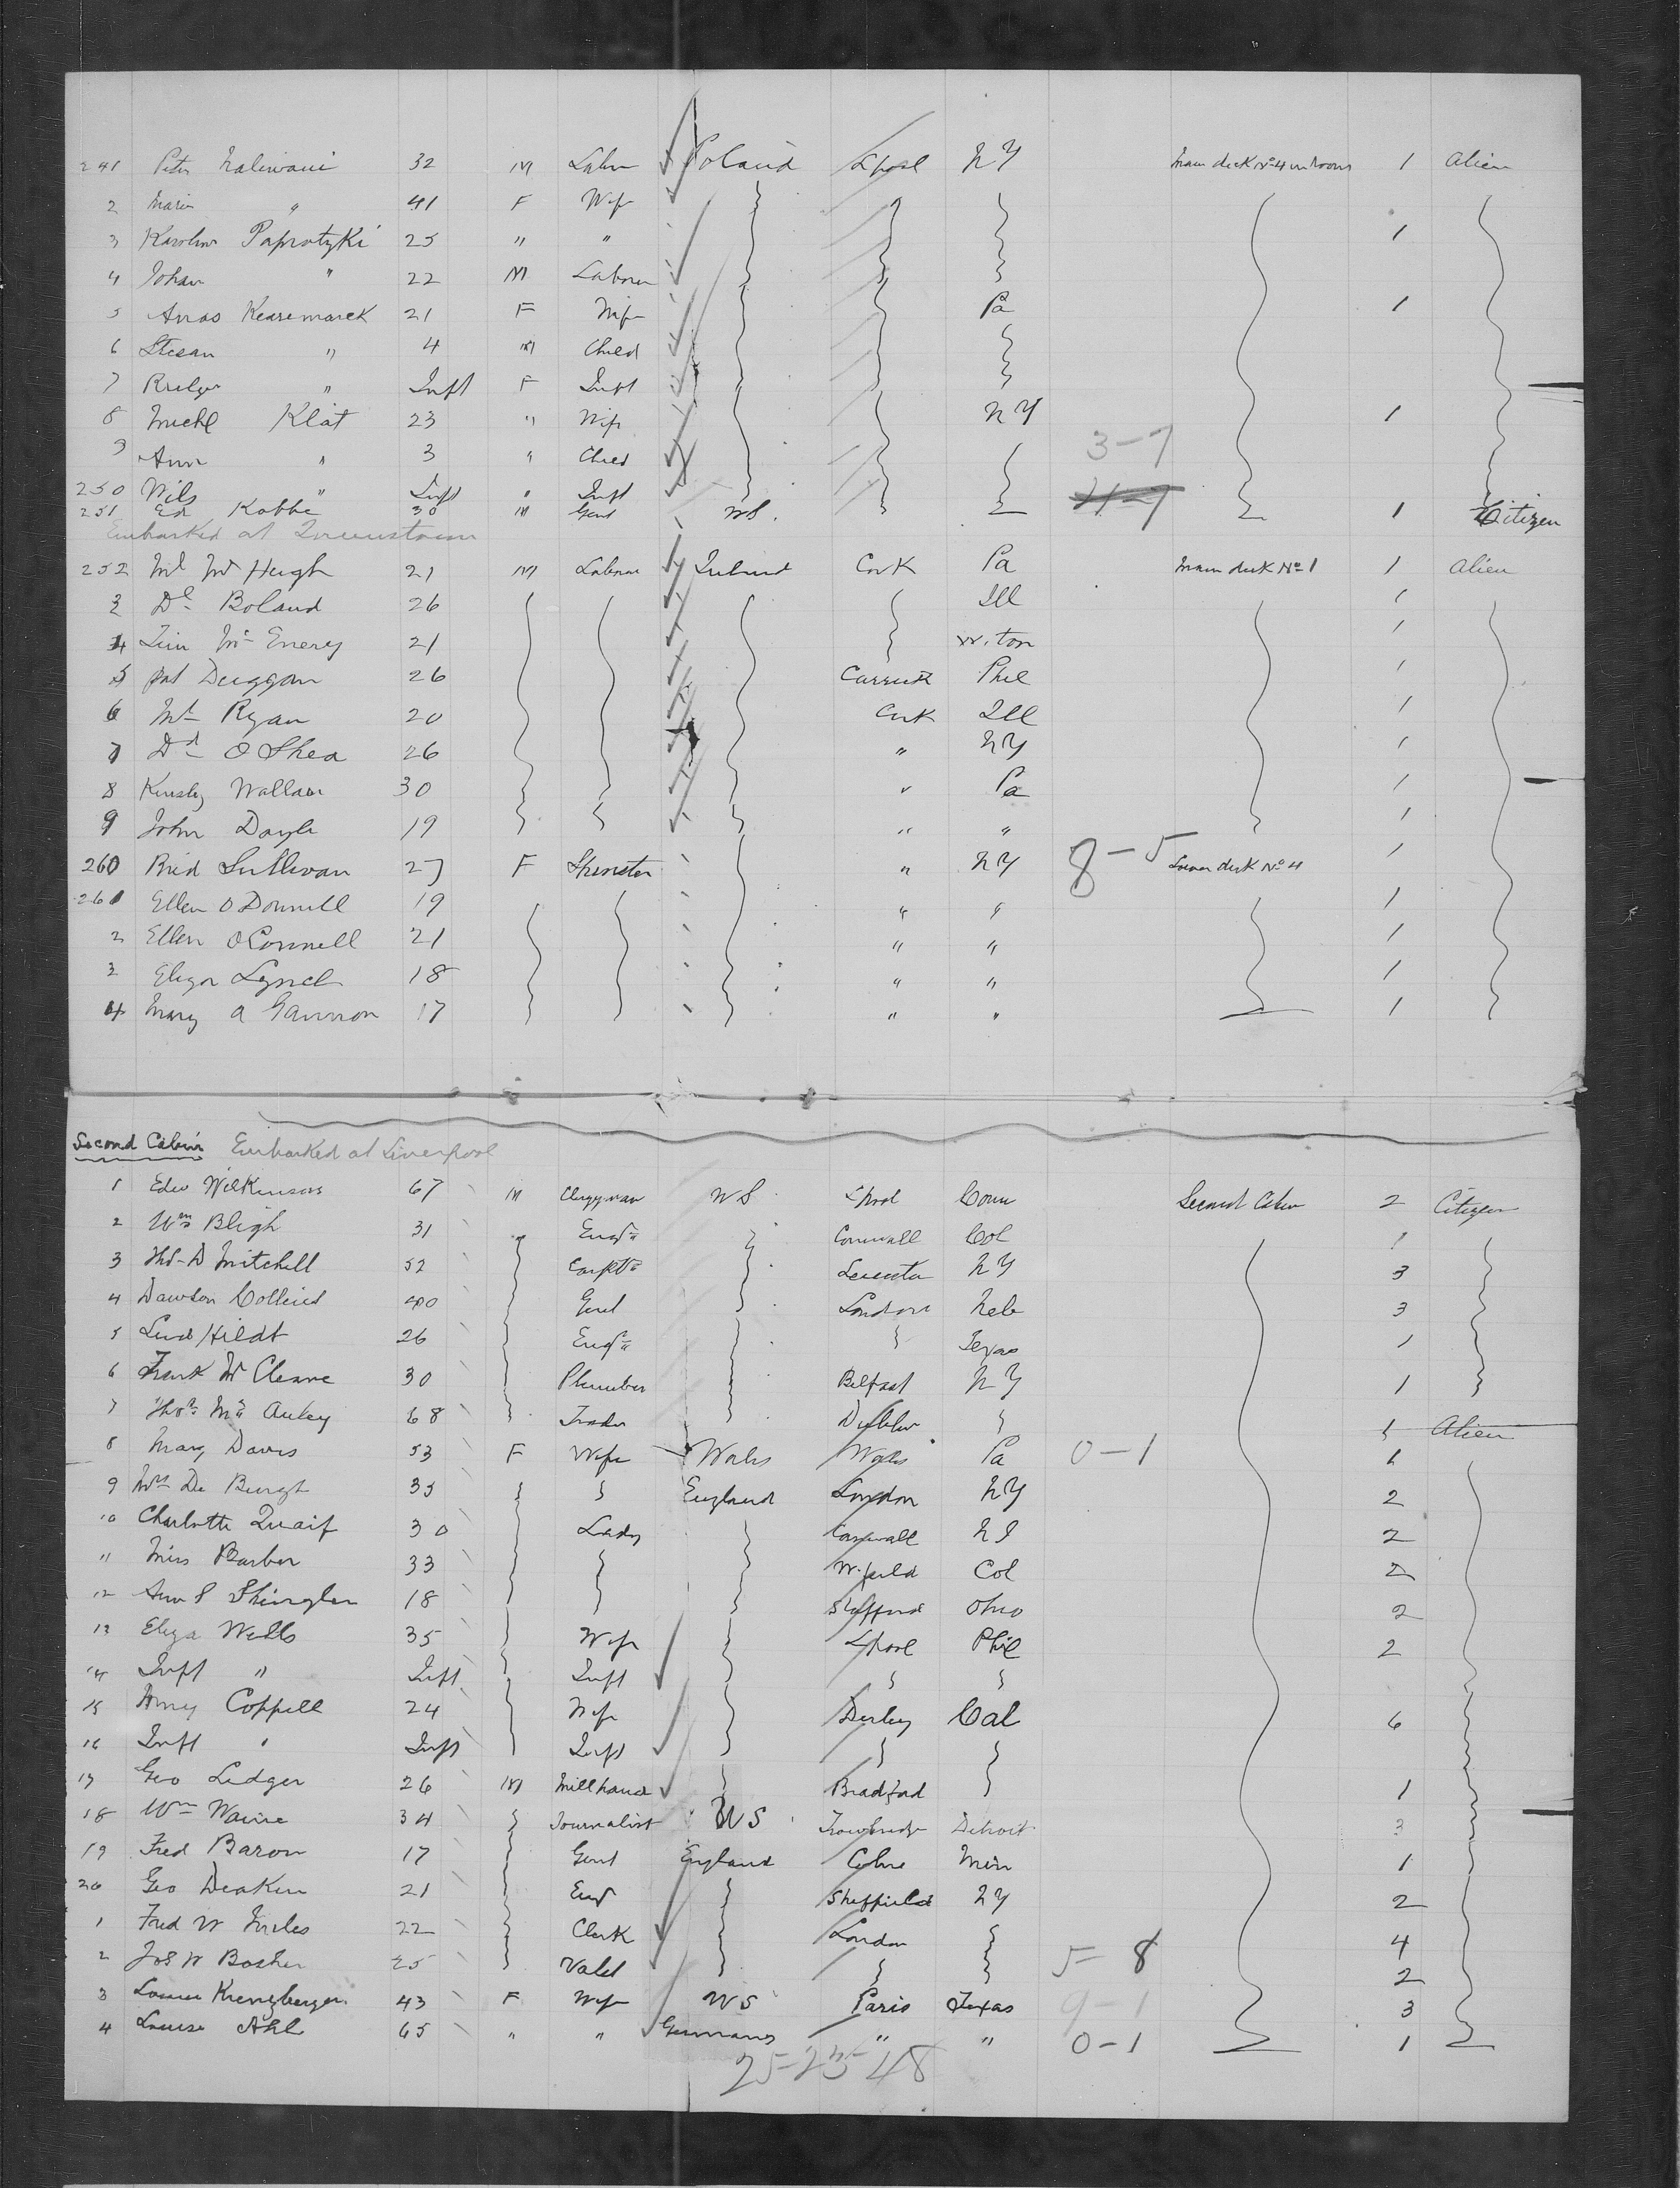 241 Peter Naliwani 32 M Labr Poland Lpool NY Main deck No 4 in Room 1 Alien
2 Marie " 41 F Wife
3 Karolina Paprotzki 25 " " 1
4 Johan " 22 M Laborer
5 Annas Kearemarek 21 F Wife Pa 1
6 Stesan " 4 M Child
7 " Inft F Inft
8 Michl Klat 23 " Wife NY 1
9 Ann " 3 " Child 3-7
250 Wils " Inft " Inft
251 Ed Kobbe 30 M Gent US. 1 Citizen
Embarked at Queenstown
252 Ml Mc Hugh 21 M Laborer Ireland Cork Pa Main deck No 1 1 Alien
3 Dl Boland 26 Ill 1
4 Tim Mc Enery 21 W.ton 1
5 Pat Duggan 26 Phil 1
6 Mt Ryan 20 Cork Ill 1
7 Dd O Shea 26 " NY 1
8 Kinsley Wallace 30 " Pa 1
9 John Doyle 19 " " 1
260 Brid Sullivan 27 F Spinster " NY 8-5 Lower deck No 4 1
261 Ellen O Donnell 19 " " 1
2 Ellen O Connell 21 " " 1
3 Eliza Lynch 18 " " 1
4 Mary A Gannon 17 " " 1
Second Cabin Embarked at Liverpool
1 Edw Wilkinson 67 M Clergyman US Lpool Conn Second Cabin 2 Citizen
2 Wm Bligh 31 Engr Cornwall Col 1
3 Thos D Mitchell 52 Carptr Leicester NY 3
4 Dawson Collins 40 Gent London Neb 3
5 Lud Hildt 26 Engr Texas 1
6 Frank Mc Cleane 30 Plumber Belfast NY 1
7 Thos Mc Auley 68 Trader Dublin 1 Alien
8 Mary Davis 53 F Wife Wales Wales Pa 0-1 1
9 Mrs De Burgh 35 England London NY 2
10 Charlotte Quaif 30 Lady Cornwall NJ 2
11 Miss Barber 33 W.field Col 2
12 Ann S Shingler 18 Stafford Ohio 2
13 Eliza Wells 35 Wife Lpool Phil 2
14 Inft " Inft Inft
15 Amy Coppell 24 Wife Derby Cal 6
16 Inft " Inft Inft
17 Geo Ledger 26 M Millhand Bradford 1
18 Wm Waine 34 Journalist US Trowbridge Detroit 3
19 Fred Baron 17 Gent England Colne Min 1
20 Geo Deakin 21 Engr Sheffield NY 2
1 Fred W Miles 22 Clerk London 4
2 Jos W Bosher 25 Valet 5-8 2
3 Louise Krenzberger 43 F Wife US Paris Texas 9-1 3
4 Louise Ahl 65 " " Germany " " 0-1 1
25-23-48